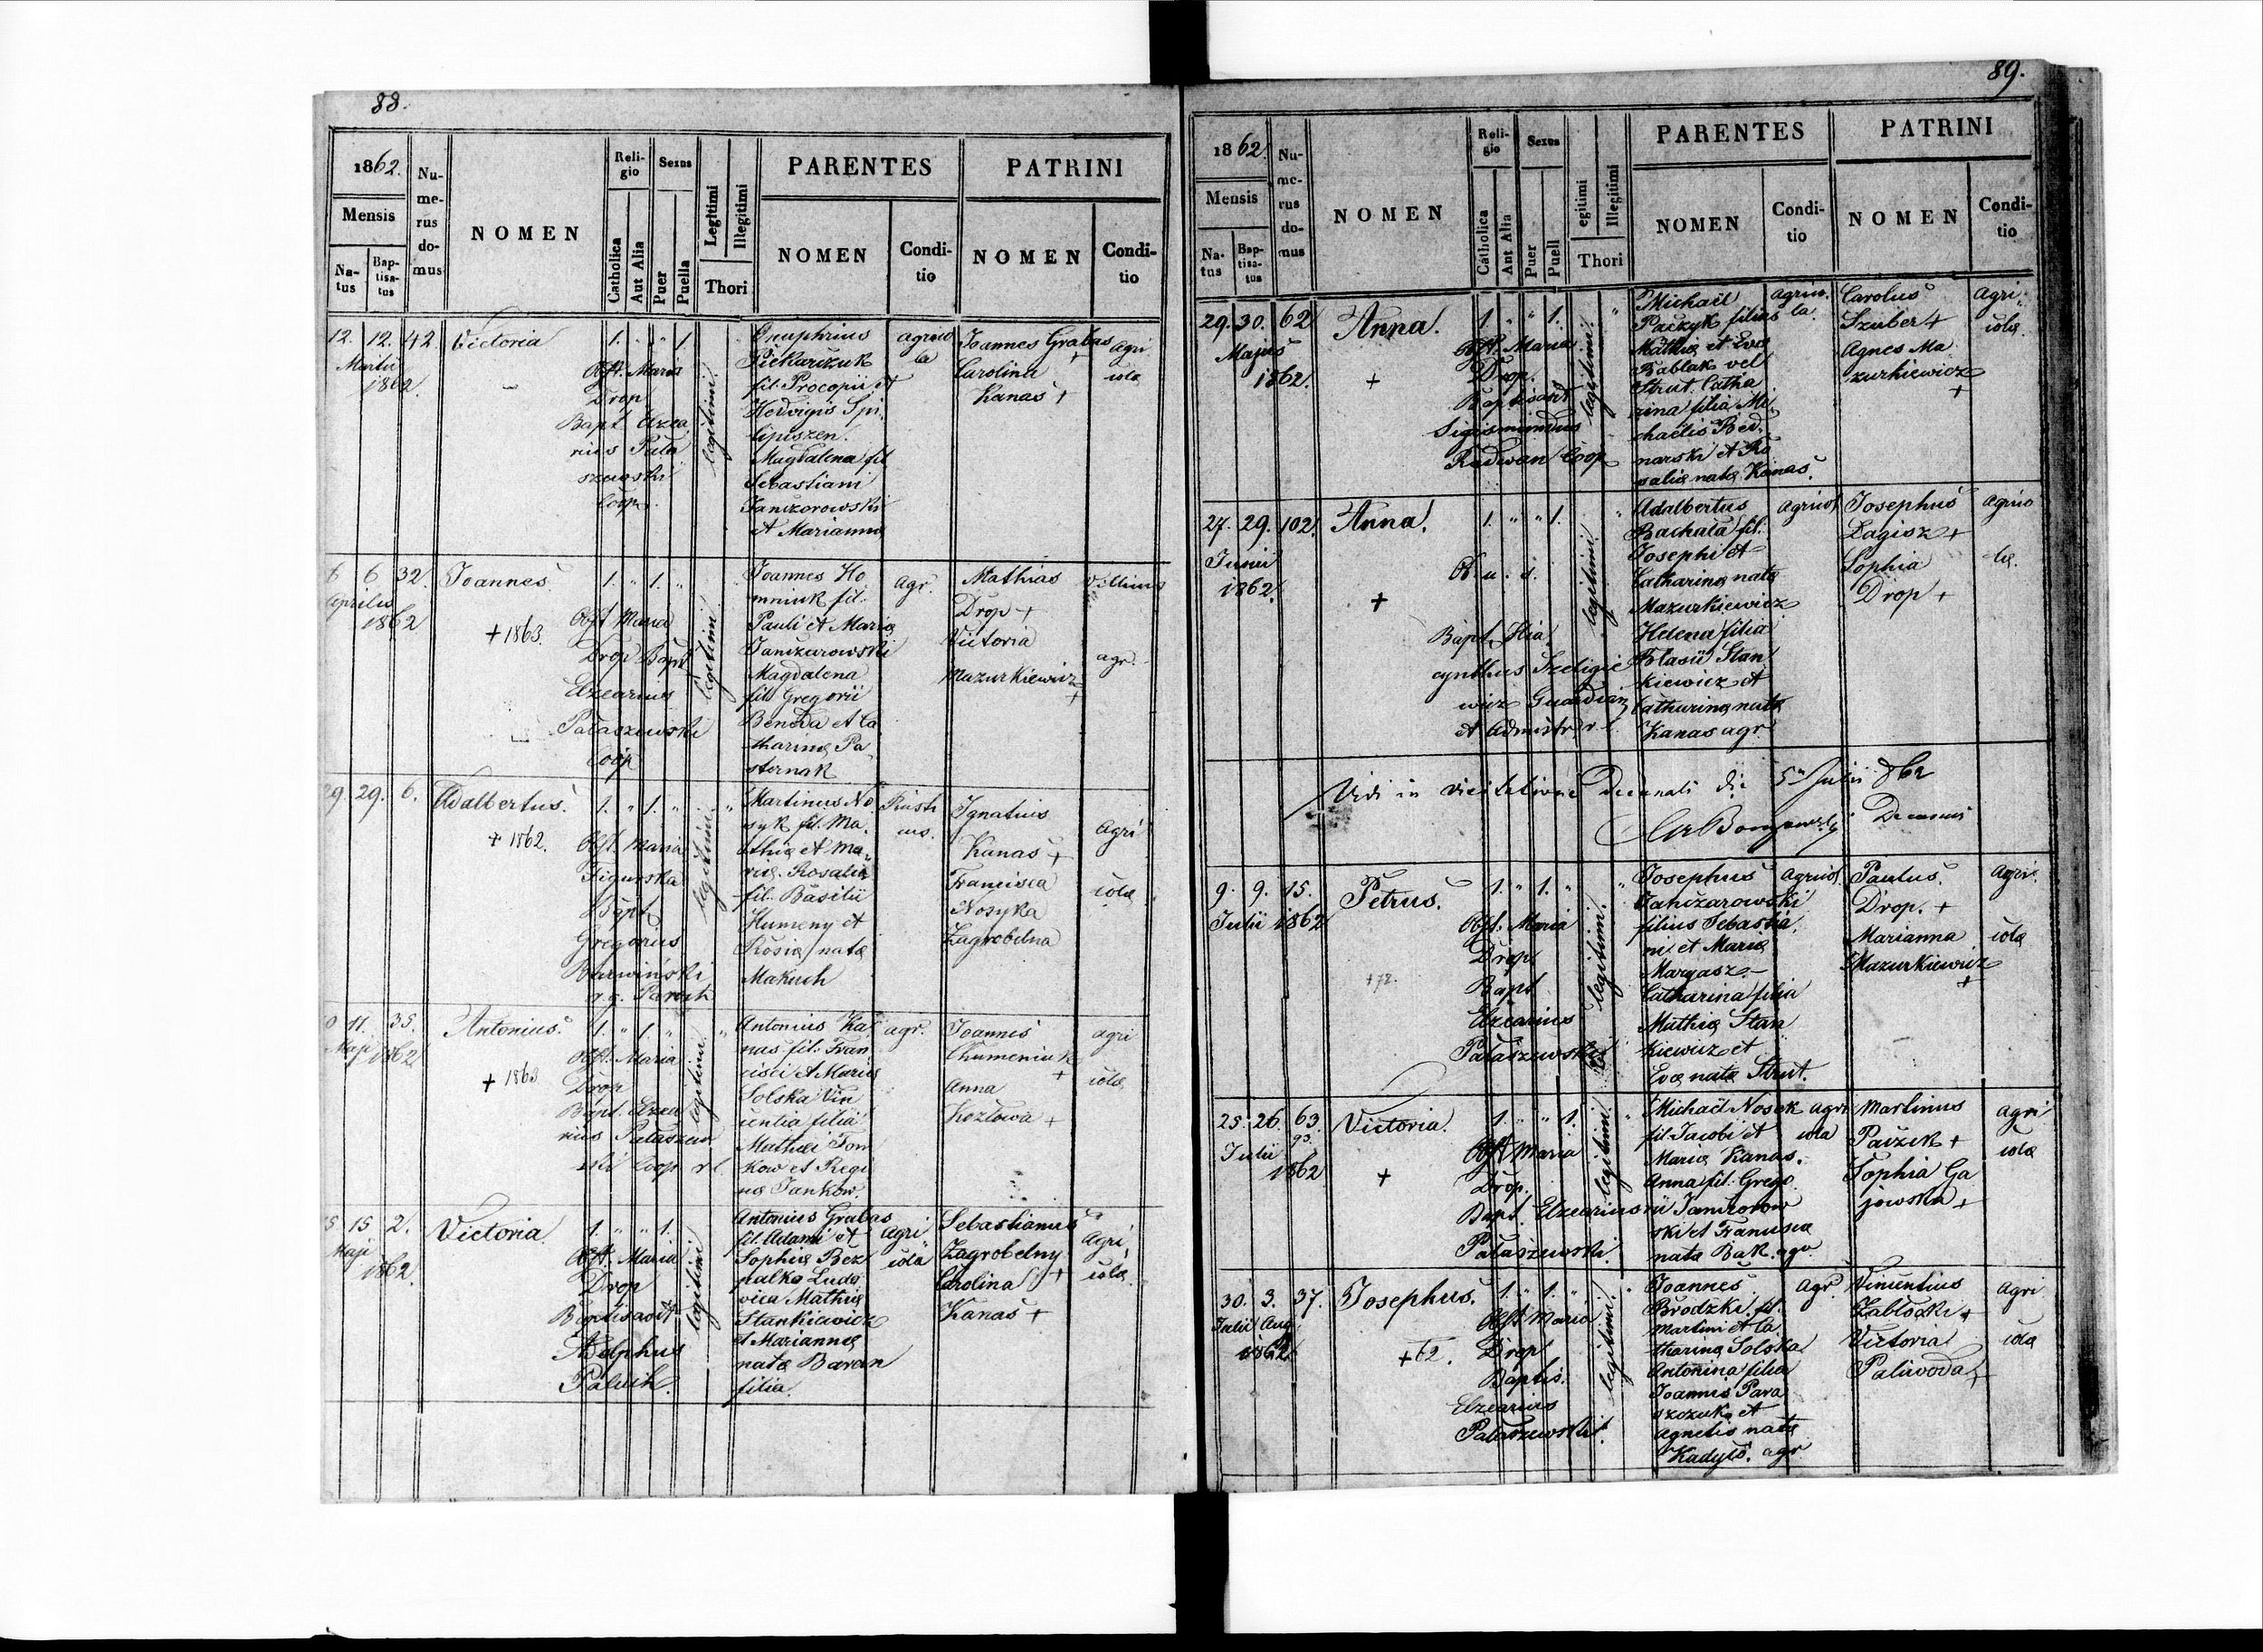 88.
1862.
Mensis
Na-
tus
Bap-
tisa-
tus
Nu-
me-
rus
do-
mus
NOMEN
Reli-
gio
Catholica
Aut Alia
Sexus
Puer
Puella
Legitimi
Illegitimi
Thori
PARENTES
NOMEN
Condi-
tio
PATRINI
NOMEN
Condi-
tio
12. 12. 42.
Martii
1862.
Victoria
1. " " 1.
Obst. Maria
Drop
Bapt. Elzea
rius Pała
szewski
Coop.
legitimi.
Onuphrius
Piekarczuk
fil. Procopii et
Hedvigis Spi
lipiszen.
Magdalena fil
Sebastiani
Janczorowski
et Marianna
agrico
la
Joannes Grabas
+
Carolina
Kanas +
agri
cola
6 6 32.
Aprilis
1862
Joannes.
+ 1863.
1. " 1. "
Obst Maria
Drop Bapt
Elzearius
Pałaszewski
Coop
legitimi
Joannes Ho
mniuk fil.
Pauli et Maria
Janczarowski
Magdalena
filia Gregorii
Benda et Ca
tharina Pa
sternak
agr.
Mathias
Drop +
Victoria
Mazurkiewicz
+
villicus
agr.
29. 29. 6.
Adalbertus.
+ 1862.
1. " 1. "
Obst. Maria
Figurska
Bapt
Gregorius
Barwiński
r. g. Paroch
legitimi.
Martinus No
syk fil. Ma.
thia et Ma„
ria. Rosalia
fil. Basilii
Humeny et
Rosia nata
Makuch
Rusti
cus.
Ignatius
Kanas +
Francisca
Nosyka
Zagrobelna
agri
cola
11. 35.
Maji 1862
Antonius.
+ 1863
1. " 1. "
Obst. Maria
Drop
Bapt. Elzea
rius Pałaszew
ski Coop r l.
legitimi
Antonius Ka
nas fil. Fran
cisci et Maria
Solska Vin
centia filia
Mathei Jan
kow et Regi
na Jankow.
agr.
Joannes
Chumeniuk
+
Anna
Kozłowa +
agri
cola
15 15 2.
Maji
1862.
Victoria.
1. " " 1.
Obst. Maria
Drop
Baptisavit
Adolphus
Paluch.
legitimi
Antonius Grabas
fil. Adami et
Sophia Bez
palko Ludo
vica Mathia
Stankiewicz
et Marianna
nata Baran
filia.
Agri„
cola
Sebastianus
Zagrobelny
Carolina +
Kanas +
Agri„
cola.
89.
1862.
Mensis
Na-
tus
Bap-
tiza-
tus
Nu-
me-
rus
do-
mus
NOMEN
Reli-
gio
Catholica
Aut Alia
Sexus
Puer
Puell
egitimi
Illegitimi
Thori
PARENTES
NOMEN
Condi-
tio
PATRINI
NOMEN
Condi-
tio
29. 30. 62
Majus
1862.
Anna.
+
1. " " 1.
Obst. Maria
Drop.
Baptisavit
Sigismundus
Radwan Coop
legitimi.
Michael
Paczyk filius
Mathia et Eva
Bablak vel
Strut. Catha
rina filia Mi
chaelis Bed„
narski et Ro
salia nata Kanas.
agrico.
la
Carolus
Szuber +
Agnes Ma
zurkiewicz
+
Agri„
cola
27. 29. 102.
Junii
1862.
Anna.
+
1. " " 1.
Ob. u. s.
Bapt. Hia
cynthus Szeligie
wicz Guardian
et Administr r. l.
legitimi.
Adalbertus
Bachała fil.
Josephi et
Catharina nata
Mazurkiewicz
Helena filia
Blasii Stan
kiewicz et
Catharina nata
Kanas agr
agricol
Josephus
Łagisz +
Sophia
Drop +
agrico
la.
Vidi in visitatione Decanali die 5a Julii 862
Decanus
9. 9. 15.
Julii 1862
Petrus.
+ 72.
1. " 1. "
Obst. Maria
Drop.
Bapt
Elzearius
Pałaszewski
legitimi.
Josephus
Janczarowski
filius Sebastia
ni et Maria
Margasz.
Catharina filia
Mathia Stan
kiewicz et
Eva nata Strut.
agricol.
Paulus.
Drop. +
Marianna
Mazurkiewicz
+
Agri.
cola
25. 26. 63.
93.
Julii
1862
Victoria.
+
1. " " 1.
Obst Maria
Drop.
Bapt. Elzearius
Pałaszewski.
legitimi
Michael Nosek
fil. Jacobi et
Maria Kanas.
Anna fil. Grego
rii Janczorow
ski et Francisca
nata Bak. agr
agri
cola
Martinus
Paczek +
Sophia Ga
jewska +
agri
cola
30. 3. 37.
Julii Aug.
1862
Josephus.
+ 62.
1. " 1. "
Obst Maria
Drop
Baptis.
Elzearius
Pałaszewski.
legitimi.
Joannes
Brodzki fil.
Martini et Ca
tharina Solska
Antonina filia
Joannis Para
szczuk et
Agnetis nata
Kadyło. agr
Agr.
Vincentius
Zabłocki +
Victoria
Paliwoda +
agri
cola